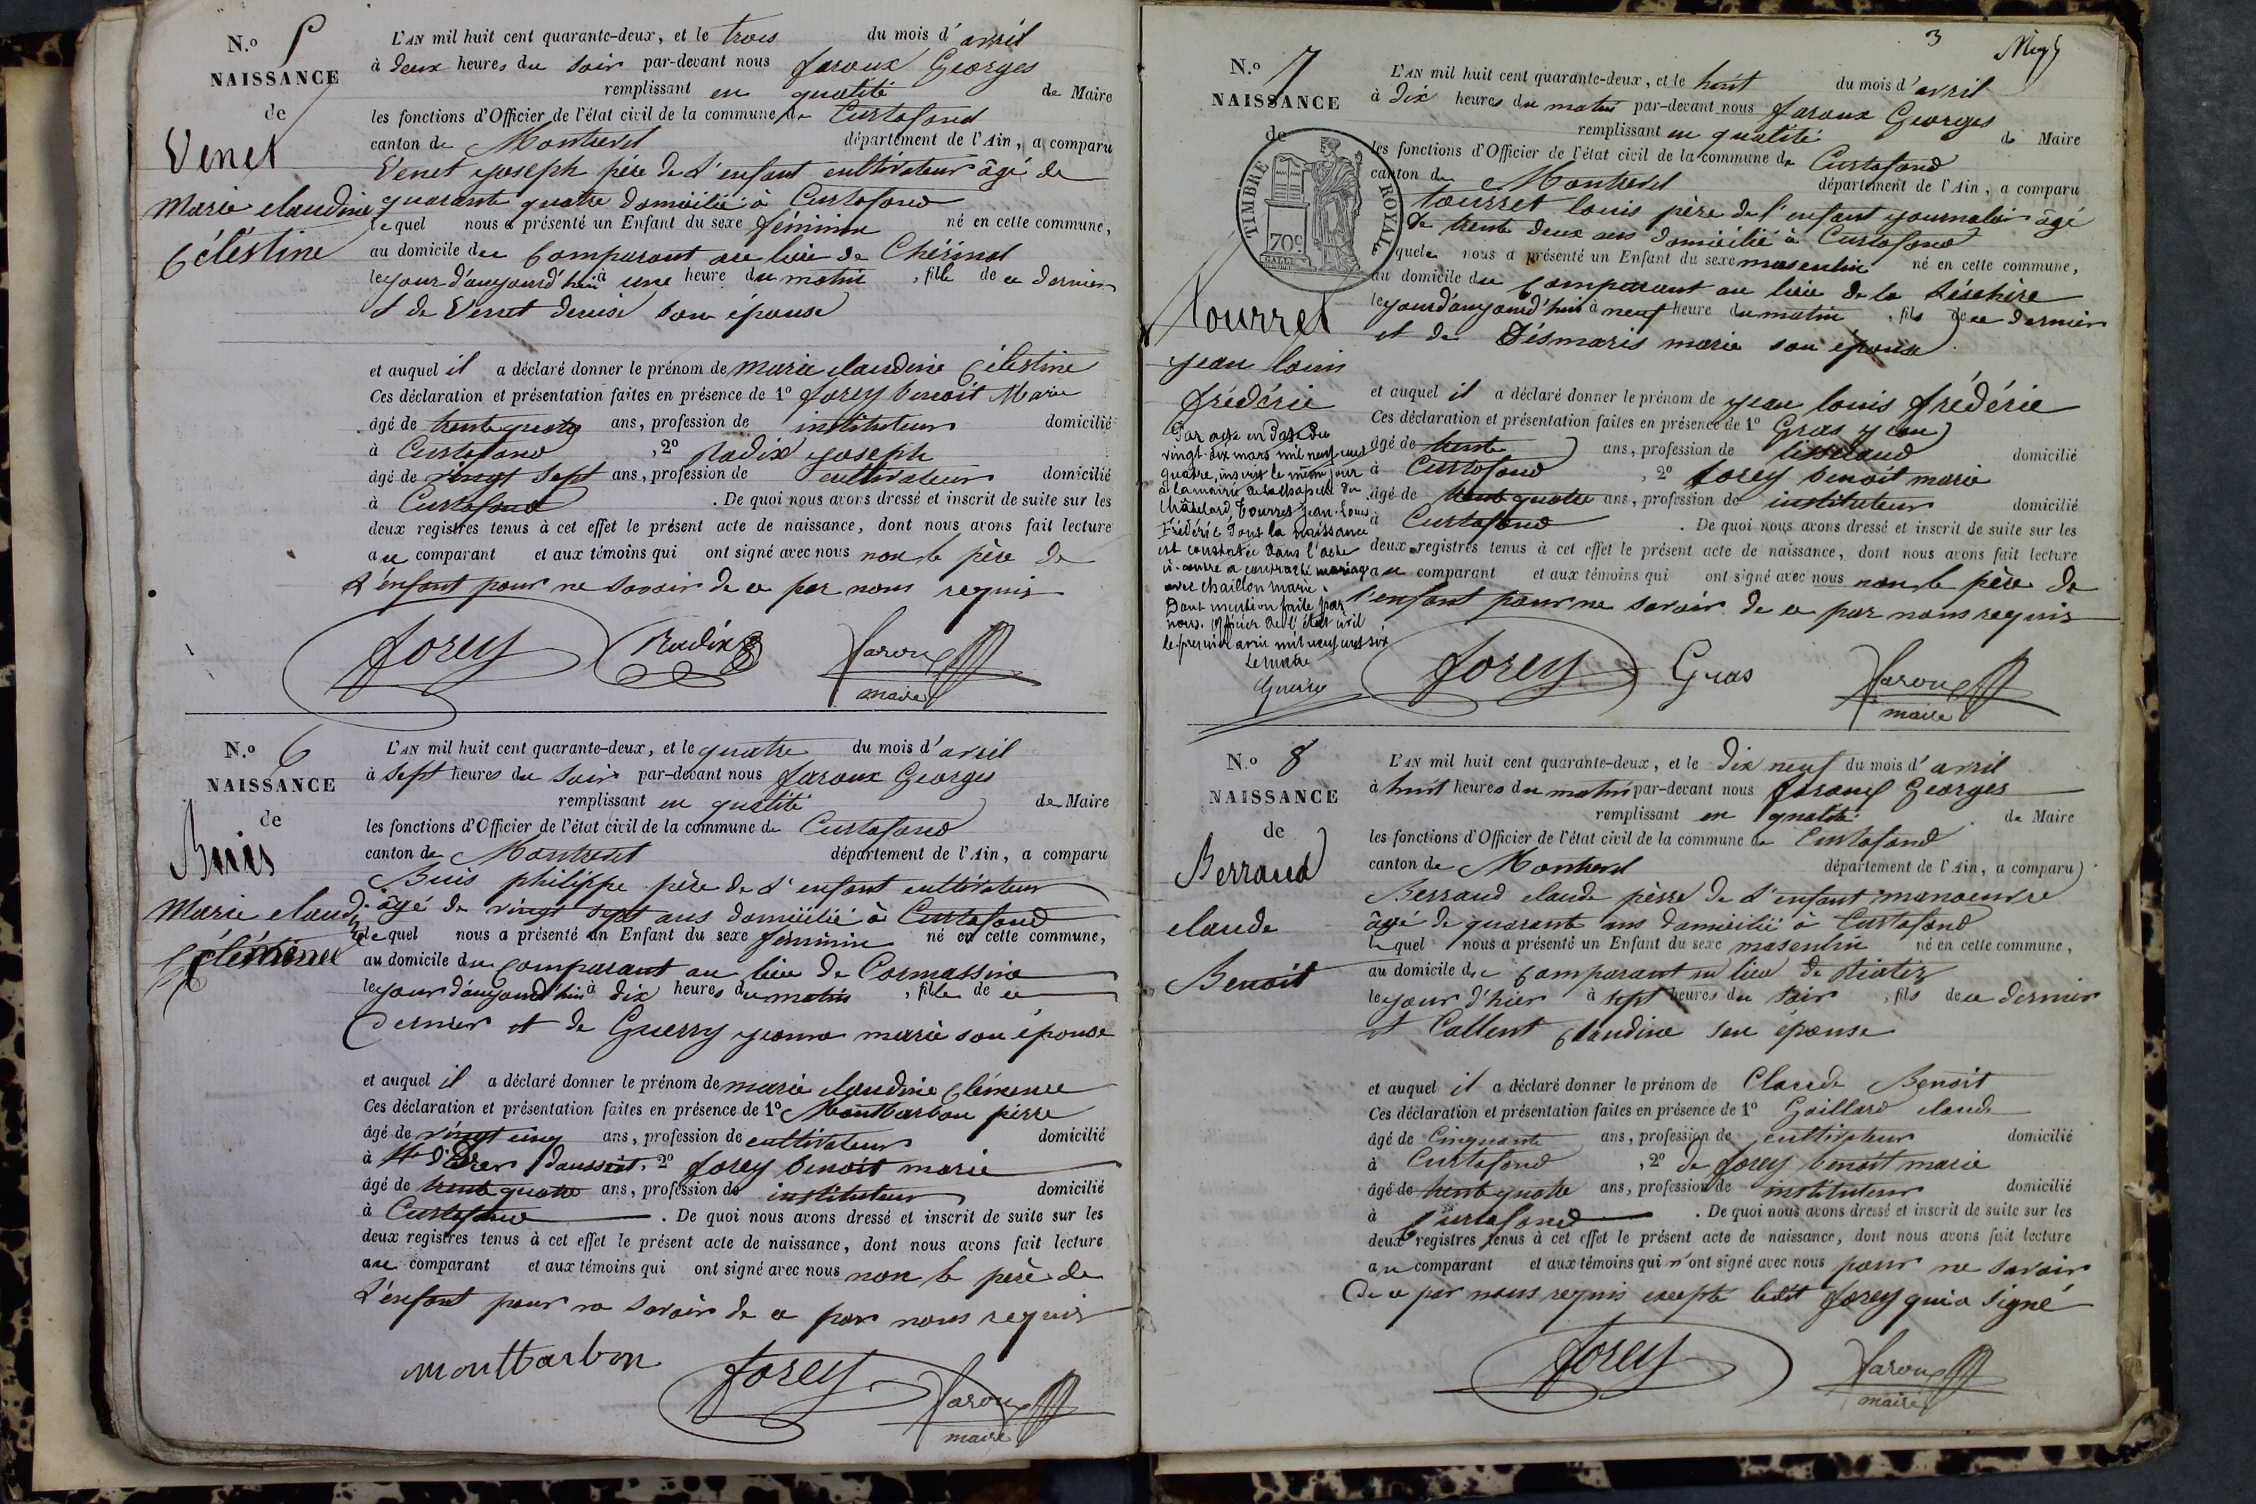 N.º 5
NAISSANCE
de
Venet
Marie claudine
Célestine
L'AN mil huit cent quarante-deux, et le trois du mois d'avril
à deux heures du soir par-devant nous faroux Georges
remplissant en qualité de Maire
les fonctions d'Officier de l'état civil de la commune de Curtafond
canton de Montrevel département de l'Ain, a comparu
Venet joseph père de l'enfant cultivateur âgé de
quarante quatre domicilié à Curtafond
lequel nous a présenté un Enfant du sexe féminin né en cette commune,
au domicile du comparant au lieu de
le jour d'aujourd'hui à une heure du matin, fille de ce dernier
et de Venet denise son épouse
et auquel il a déclaré donner le prénom de marie claudine Célestine
Ces déclaration et présentation faites en présence de 1º forey benoit Marie
âgé de trente quatre ans, profession de instituteur domicilié
à Curtafond, 2º Radix joseph
âgé de vingt sept ans, profession de cultivateur domicilié
à Curtafond. De quoi nous avons dressé et inscrit de suite sur les
deux registres tenus à cet effet le présent acte de naissance, dont nous avons fait lecture
au comparant et aux témoins qui ont signé avec nous non le père de
l'enfant pour ne savoir de ce par nous requis
forey Radix faroux
maire
N.º 6
NAISSANCE
de
Buis
Marie claudine
Clémence
L'AN mil huit cent quarante-deux, et le quatre du mois d'avril
à sept heures du soir par-devant nous faroux Georges
remplissant en qualité de Maire
les fonctions d'Officier de l'état civil de la commune de Curtafond
canton de Montrevel département de l'Ain, a comparu
Buis philippe père de l'enfant cultivateur
âgé de vingt sept ans domicilié à Curtafond
lequel nous a présenté un Enfant du sexe féminin né en cette commune,
au domicile du comparant au lieu de Cormassine
le jour d'aujourd'hui à dix heures du matin, fille de ce
dernier et de Guerry jeanne marie son épouse
et auquel il a déclaré donner le prénom de marie claudine Clémence
Ces déclaration et présentation faites en présence de 1º Montbarbon pierre
âgé de vingt cinq ans, profession de cultivateur domicilié
à St Didier d'aussiat, 2º forey benoit marie
âgé de trente quatre ans, profession de instituteur domicilié
à Curtafond. De quoi nous avons dressé et inscrit de suite sur les
deux registres tenus à cet effet le présent acte de naissance, dont nous avons fait lecture
au comparant et aux témoins qui ont signé avec nous non le père de
l'enfant pour ne savoir de ce par nous requis
montbarbon forey faroux
maire
3
N.º 7
NAISSANCE
de
TIMBRE ROYAL
70c
tourret
jean louis
frédéric
Par acte en date du
vingt-six mars mil neuf cent
quatre, inscrit le même jour
à la mairie de la Chapelle du
Châtelard Tourret Jean-Louis
Frédéric dont la naissance
est constatée dans l'acte
ci-contre a contracté mariage
avec Chaillon Marie.
Dont mention faite par
nous, officier de l'état civil
le premier avril mil neuf cent six
Le maire
L'AN mil huit cent quarante-deux, et le huit du mois d'avril
à dix heures du matin par-devant nous faroux Georges
remplissant en qualité de Maire
les fonctions d'Officier de l'état civil de la commune de Curtafond
canton de Montrevel département de l'Ain, a comparu
tourret louis père de l'enfant journalier âgé
de trente deux ans domicilié à Curtafond
quel nous a présenté un Enfant du sexe masculin né en cette commune,
au domicile du comparant au lieu de la
le jour d'aujourd'hui à neuf heure du matin, fils de ce dernier
et de Désmaris marie son épouse
et auquel il a déclaré donner le prénom de jean louis frédéric
Ces déclaration et présentation faites en présence de 1º Gras jean
âgé de trente ans, profession de tisserand domicilié
à Curtafond, 2º forey benoit marie
âgé de trente quatre ans, profession de instituteur domicilié
à Curtafond. De quoi nous avons dressé et inscrit de suite sur les
deux registres tenus à cet effet le présent acte de naissance, dont nous avons fait lecture
au comparant et aux témoins qui ont signé avec nous non le père de
l'enfant pour ne savoir de ce par nous requis
forey Gras faroux
maire
N.º 8
NAISSANCE
de
Berraud
claude
Benoit
L'AN mil huit cent quarante-deux, et le dix neuf du mois d'avril
à huit heures du matin par-devant nous faroux Georges
remplissant en qualité de Maire
les fonctions d'Officier de l'état civil de la commune de Curtafond
canton de Montrevel département de l'Ain, a comparu
Berraud claude pèrre de l'enfant manoeuvre
âgé de quarante ans domicilié à Curtafond
lequel nous a présenté un Enfant du sexe masculin né en cette commune,
au domicile du comparant au lieu de
le jour d'hier à sept heures du soir, fils de ce dernier
et Callent Claudine son épouse
et auquel il a déclaré donner le prénom de Claude Benoit
Ces déclaration et présentation faites en présence de 1º Gaillard claude
âgé de Cinquante ans, profession de cultivateur domicilié
à Curtafond, 2º de forey benoit marie
âgé de trente quatre ans, profession de instituteur domicilié
à Curtafond. De quoi nous avons dressé et inscrit de suite sur les
deux registres tenus à cet effet le présent acte de naissance, dont nous avons fait lecture
au comparant et aux témoins qui n'ont signé avec nous pour ne savoir
de ce par nous requis excepté ledit forey qui a signé
forey faroux
maire